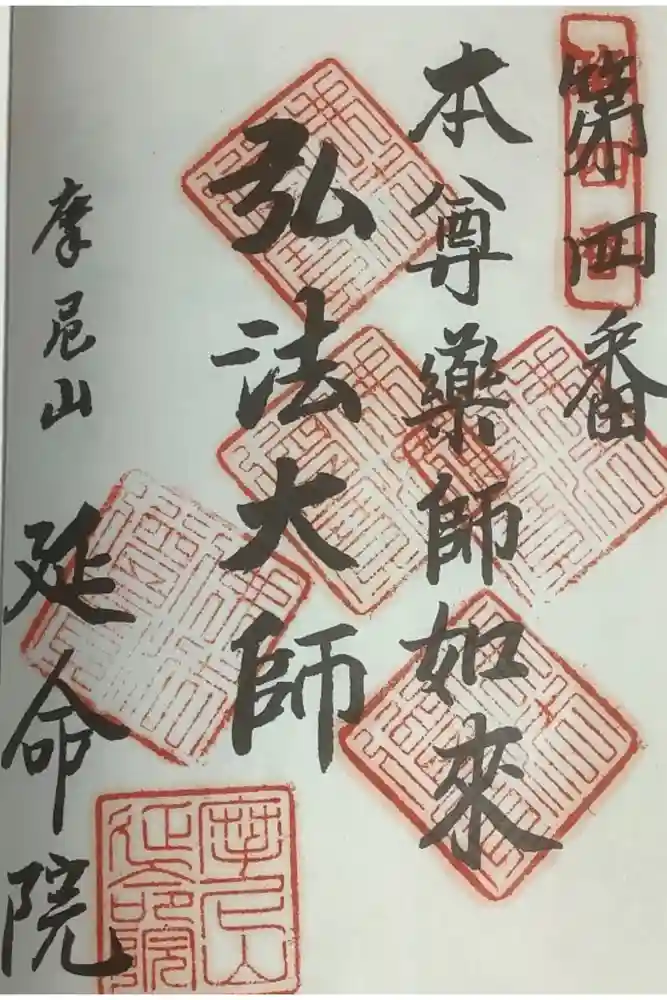 第四番
本尊藥師如來
弘法大師
摩尼山
延命院
第四
摩尼山
延命院